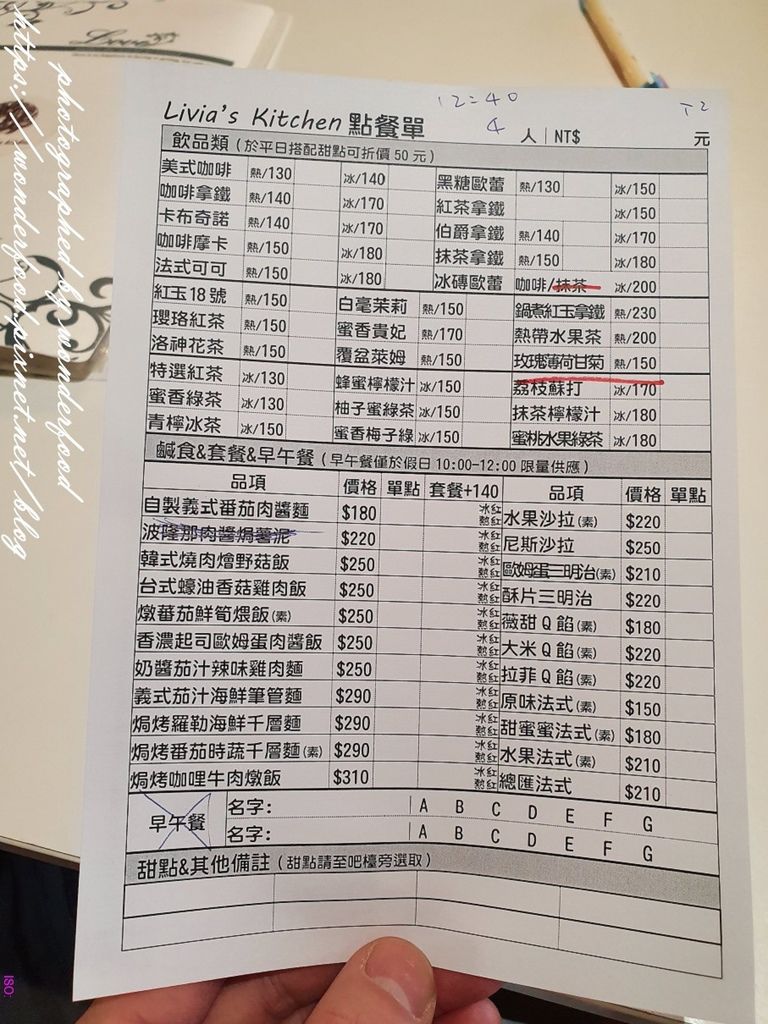 photographed by wonderfood
https://wonderfood.pixnet.net/blog
Love
12:40
T2
Livia's Kitchen 點餐單 4 人 | NT$ 元
飲品類 (於平日搭配甜點可折價 50 元)
美式咖啡 熱/130 冰/140 黑糖歐蕾 熱/130 冰/150
咖啡拿鐵 熱/140 冰/170 紅茶拿鐵 冰/150
卡布奇諾 熱/140 冰/170 伯爵拿鐵 熱/140 冰/170
咖啡摩卡 熱/150 冰/180 抹茶拿鐵 熱/150 冰/180
法式可可 熱/150 冰/180 冰磚歐蕾 咖啡/抹茶 冰/200
紅玉18號 熱/150 白毫茉莉 熱/150 鍋煮紅玉拿鐵 熱/230
瓔珞紅茶 熱/150 蜜香貴妃 熱/170 熱帶水果茶 熱/200
洛神花茶 熱/150 覆盆萊姆 熱/150 玫瑰薄荷甘菊 熱/150
特選紅茶 冰/130 蜂蜜檸檬汁 冰/150 荔枝蘇打 冰/170
蜜香綠茶 冰/130 柚子蜜綠茶 冰/150 抹茶檸檬汁 冰/180
青檸冰茶 冰/150 蜜香梅子綠 冰/150 蜜桃水果綠茶 冰/180
鹹食&套餐&早午餐 (早午餐僅於假日 10:00-12:00 限量供應)
品項 價格 單點 套餐+140 品項 價格 單點
自製義式番茄肉醬麵 $180 冰紅 熱紅 水果沙拉(素) $220
波隆那肉醬焗薯泥 $220 冰紅 熱紅 尼斯沙拉 $250
韓式燒肉燴野菇飯 $250 冰紅 熱紅 歐姆蛋三明治(素) $210
台式蠔油香菇雞肉飯 $250 冰紅 熱紅 酥片三明治 $220
燉蕃茄鮮筍煨飯(素) $250 冰紅 熱紅 薇甜Q餡(素) $180
香濃起司歐姆蛋肉醬飯 $250 冰紅 熱紅 大米Q餡(素) $220
奶醬茄汁辣味雞肉麵 $250 冰紅 熱紅 拉菲Q餡(素) $220
義式茄汁海鮮筆管麵 $290 冰紅 熱紅 原味法式(素) $150
焗烤羅勒海鮮千層麵 $290 冰紅 熱紅 甜蜜蜜法式(素) $180
焗烤番茄時蔬千層麵(素) $290 冰紅 熱紅 水果法式(素) $210
焗烤咖哩牛肉燉飯 $310 冰紅 熱紅 總匯法式 $210
早午餐 名字: A B C D E F G
名字: A B C D E F G
甜點&其他備註 (甜點請至吧檯旁選取)
ISO: